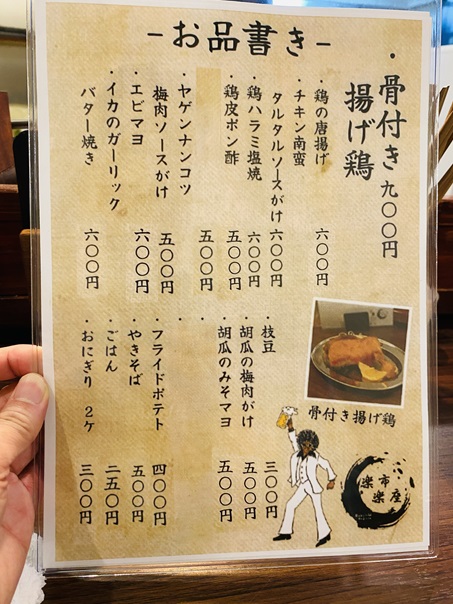 -お品書き-
・骨付き揚げ鶏 九〇〇円
・鶏の唐揚げ 六〇〇円
・チキン南蛮
タルタルソースがけ 六〇〇円
・鶏ハラミ塩焼 六〇〇円
・鶏皮ポン酢 五〇〇円
五〇〇円
・ヤゲンナンコツ
梅肉ソースがけ 五〇〇円
・エビマヨ 六〇〇円
・イカのガーリック
バター焼き 六〇〇円
骨付き揚げ鶏
・枝豆 三〇〇円
・胡瓜の梅肉がけ 五〇〇円
・胡瓜のみそマヨ 五〇〇円
・
・
・フライドポテト 四〇〇円
・やきそば 五〇〇円
・ごはん 二五〇円
・おにぎり 2ケ 三〇〇円
楽市
楽座